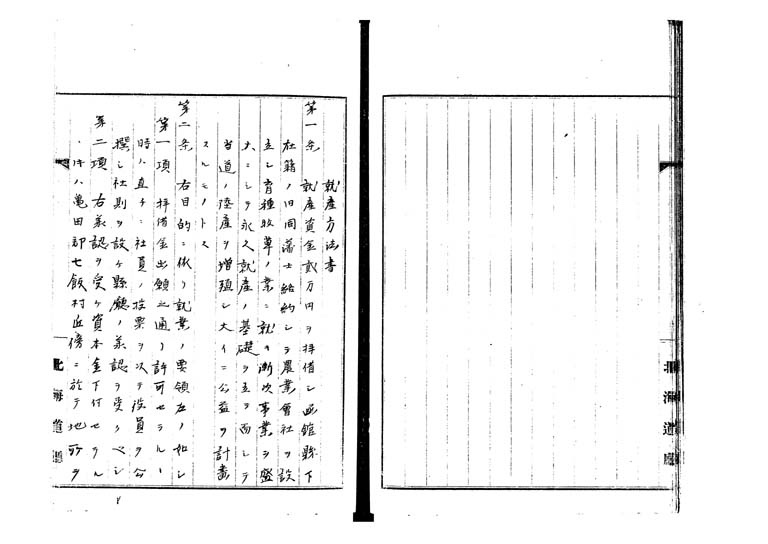 就産方法書
第一条 就産資金貳万円ヲ拝借シ函館縣下
在籍ノ旧同藩士結約シテ農業會社ヲ設
立シ育種牧草ノ業ニ就キ漸次事業ヲ盛
大ニシテ永久就産ノ基礎ヲ立ツ而シテ
当道ノ陸産ヲ増殖シ大イニ公益ヲ計畫
スルモノトス
第二条 右目的ニ依リ就業ノ要領左ノ如シ
第一項 拝借金出願之通リ許可セラルヽ
時ハ直チニ社員ノ投票ヲ以テ役員ヲ公
撰シ社則ヲ設ケ縣廳ノ承認ヲ受クベシ
第二項 右承認ヲ受ケ資本金下付セラル
時ハ亀田郡七飯村近傍ニ於テ地所ヲ
北海道廳
北海道廳